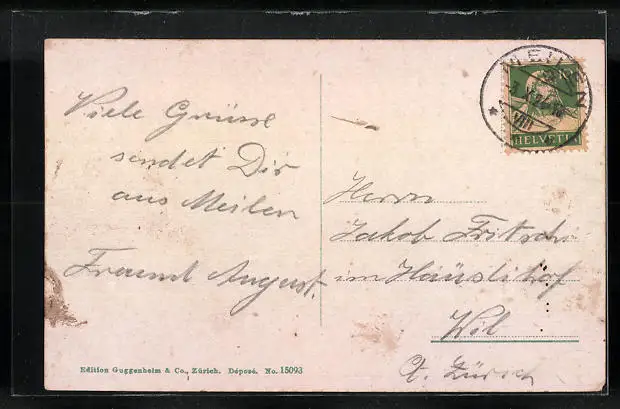 Viele Grüsse
sendet Dir
aus Meilen
Freund August.
Edition Guggenheim & Co., Zürich. Déposé. No. 15093
MEILEN
VIII
HELVETIA
Herrn
Jakob Fritschi
im Häuslihof
Wil
Ct. Zürich